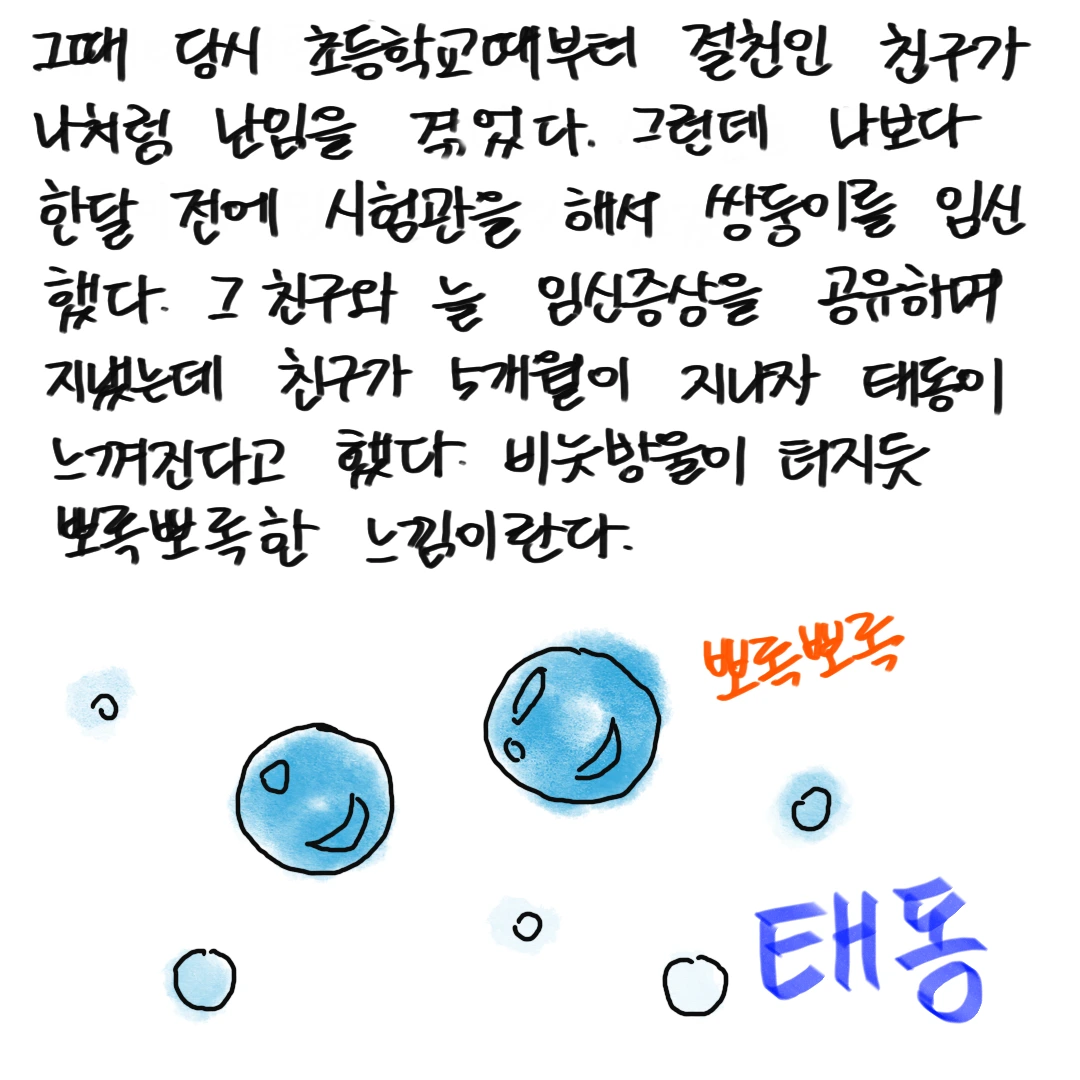 그때 당시 초등학교때부터 절친인 친구가
나처럼 난임을 겪었다. 그런데 나보다
한달 전에 시험관을 해서 쌍둥이를 임신
했다. 그 친구와 늘 임신증상을 공유하며
지냈는데 친구가 5개월이 지나자 태동이
느껴진다고 했다. 비눗방울이 터지듯
뽀록뽀록한 느낌이란다.
뽀록뽀록
태동